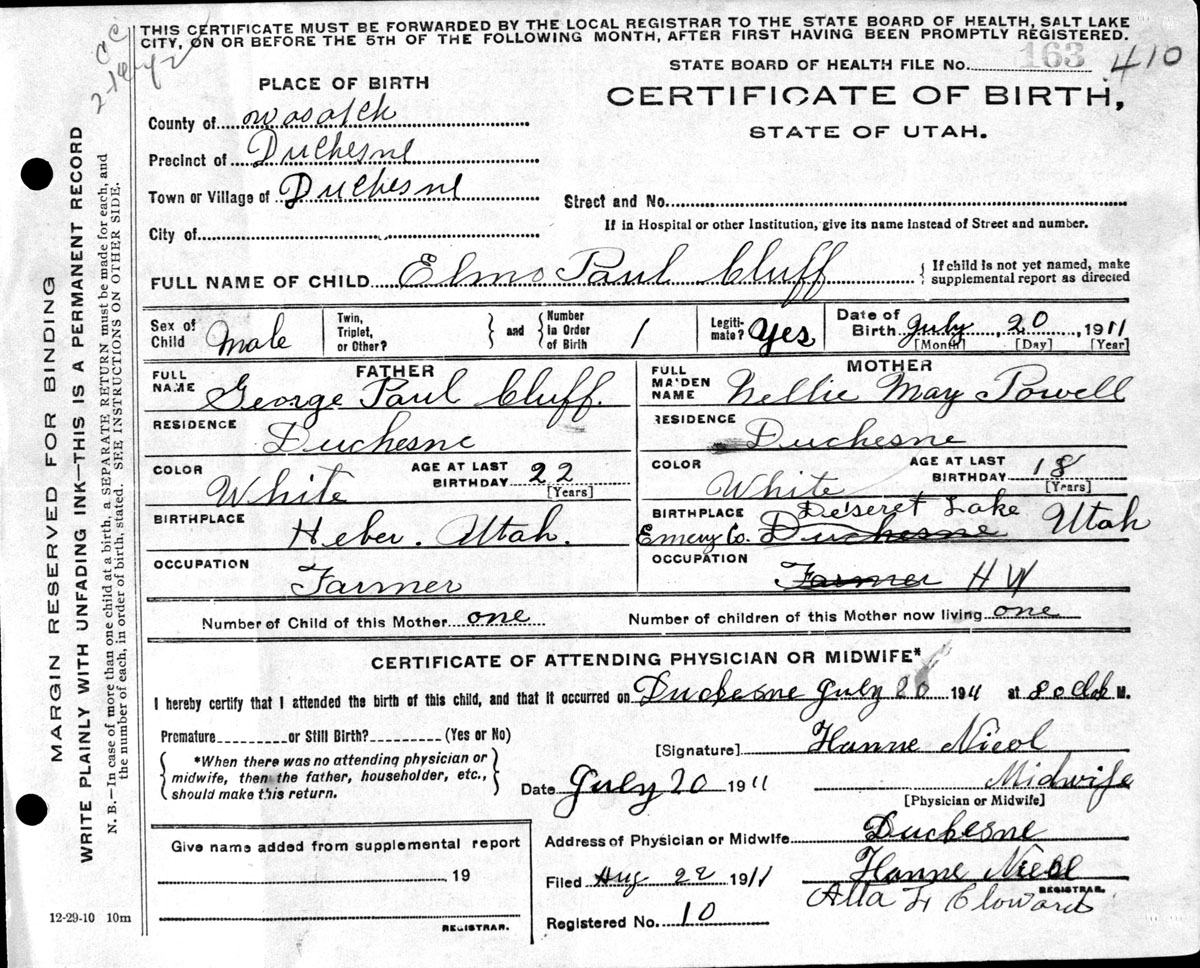 THIS CERTIFICATE MUST BE FORWARDED BY THE LOCAL REGISTRAR TO THE STATE BOARD OF HEALTH, SALT LAKE
CITY, ON OR BEFORE THE 5TH OF THE FOLLOWING MONTH, AFTER FIRST HAVING BEEN PROMPTLY REGISTERED.
STATE BOARD OF HEALTH FILE No. 163 410
PLACE OF BIRTH
CERTIFICATE OF BIRTH,
STATE OF UTAH.
County of Wasatch
Precinct of Duchesne
Town or Village of Duchesne
Street and No.
City of
If in Hospital or other Institution, give its name instead of Street and number.
FULL NAME OF CHILD Elmo Paul Cluff { If child is not yet named, make supplemental report as directed
Sex of Child Male Twin, Triplet, or Other? } and { Number in Order of Birth 1 Legiti-mate? Yes Date of Birth July, 20, 1911
[Month] [Day] [Year]
FATHER
MOTHER
FULL NAME George Paul Cluff.
FULL MAIDEN NAME Nellie May Powell
RESIDENCE Duchesne
RESIDENCE Duchesne
COLOR White AGE AT LAST BIRTHDAY 22 [Years]
COLOR White AGE AT LAST BIRTHDAY 18 [Years]
BIRTHPLACE Heber. Utah.
BIRTHPLACE Deseret Lake
Emery Co. Duchesne Utah
OCCUPATION Farmer
OCCUPATION Farmer H W
Number of Child of this Mother one
Number of children of this Mother now living one
CERTIFICATE OF ATTENDING PHYSICIAN OR MIDWIFE*
I hereby certify that I attended the birth of this child, and that it occurred on Duchesne July 20 1911 at 8 M.
Premature or Still Birth? (Yes or No)
[Signature] Hanne Nicol
{ *When there was no attending physician or
midwife, then the father, householder, etc.,
should make this return. }
Date July 20 1911
Midwife
[Physician or Midwife]
Give name added from supplemental report
19
REGISTRAR.
12-29-10 10m
Address of Physician or Midwife Duchesne
Filed Aug 22 1911 Hanne Nicol
REGISTRAR.
Registered No. 10
MARGIN RESERVED FOR BINDING
WRITE PLAINLY WITH UNFADING INK—THIS IS A PERMANENT RECORD
N. B.—In case of more than one child at a birth, a SEPARATE RETURN must be made for each, and
the number of each, in order of birth, stated. SEE INSTRUCTIONS ON OTHER SIDE.